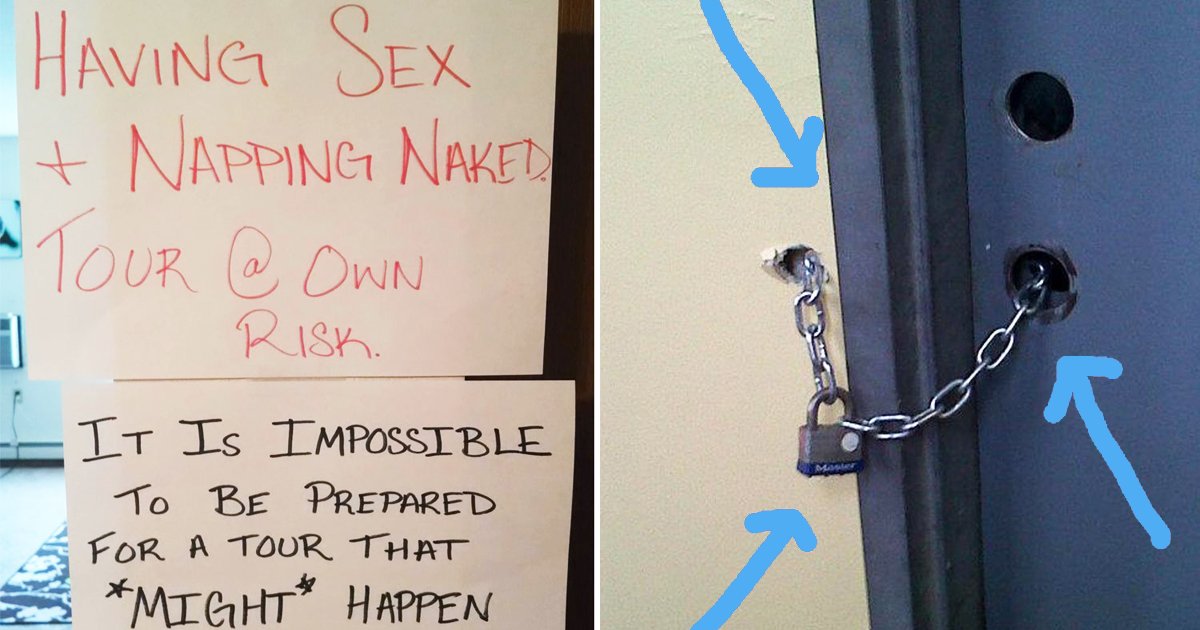 HAVING SEX
+ NAPPING NAKED.
TOUR @ OWN
RISK.
IT IS IMPOSSIBLE
TO BE PREPARED
FOR A TOUR THAT
*MIGHT* HAPPEN
Master